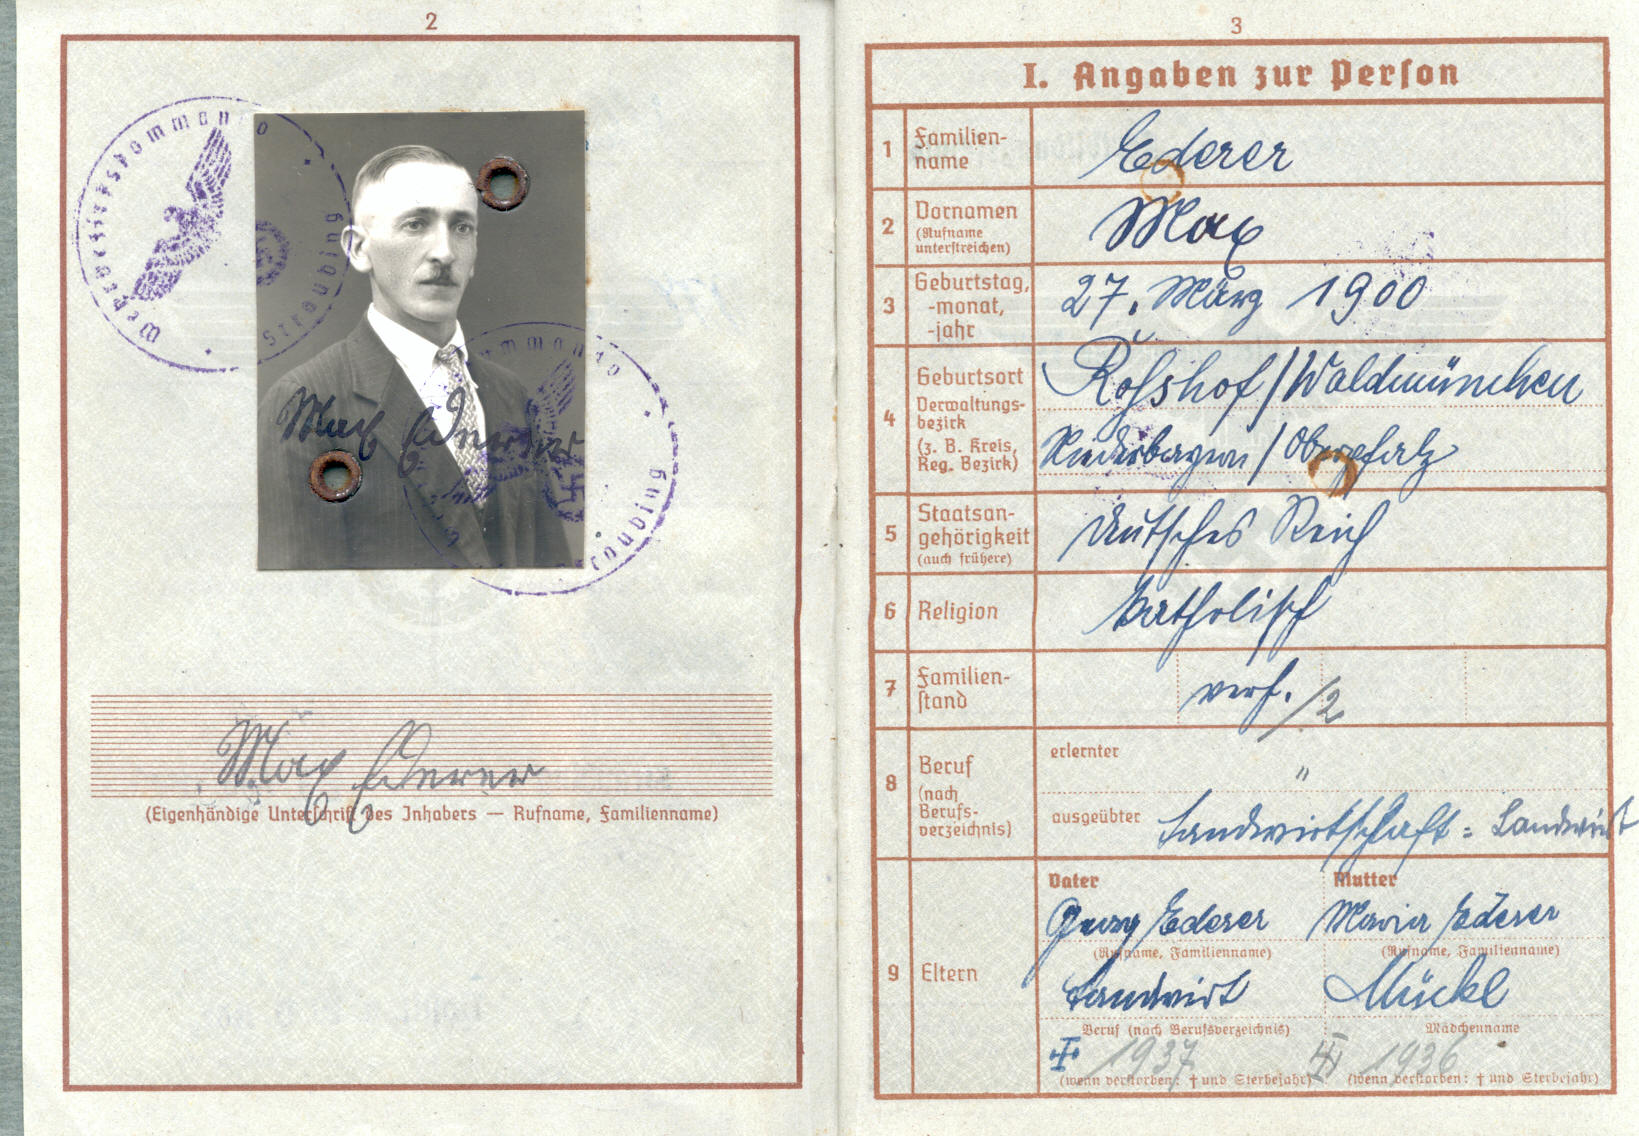 2
Wehrbezirkskommando
Straubing
Max Ederer
mmando
Straubing
Max Ederer
(Eigenhändige Unterschrift des Inhabers — Rufname, Familienname)
3
I. Angaben zur Person
1 Familien-
name
Ederer
2 Vornamen
(Rufname
unterstreichen)
Max
3 Geburtstag,
-monat,
-jahr
27. März 1900
4 Geburtsort
Verwaltungs-
bezirk
(z. B. Kreis,
Reg. Bezirk)
Roßhof/Waldmünchen
Niederbayern/Oberpfalz
5 Staatsan-
gehörigkeit
(auch frühere)
Deutsches Reich
6 Religion
katholisch
7 Familien-
stand
verh. /2
8 Beruf
(nach
Berufs-
verzeichnis)
erlernter
"
ausgeübter Landwirtschaft = Landwirt
9 Eltern
Vater Mutter
Georg Ederer Maria Ederer
(Rufname, Familienname) (Rufname, Familienname)
Landwirt Mückl
Beruf (nach Berufsverzeichnis) Mädchenname
1937 1936
(wenn verstorben: † und Sterbejahr) (wenn verstorben: † und Sterbejahr)